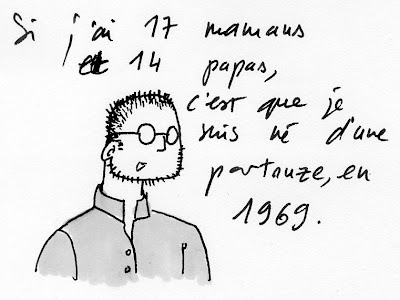 Si j'ai 17 mamans
et 14 papas,
c'est que je
suis né d'une
partouze, en
1969.